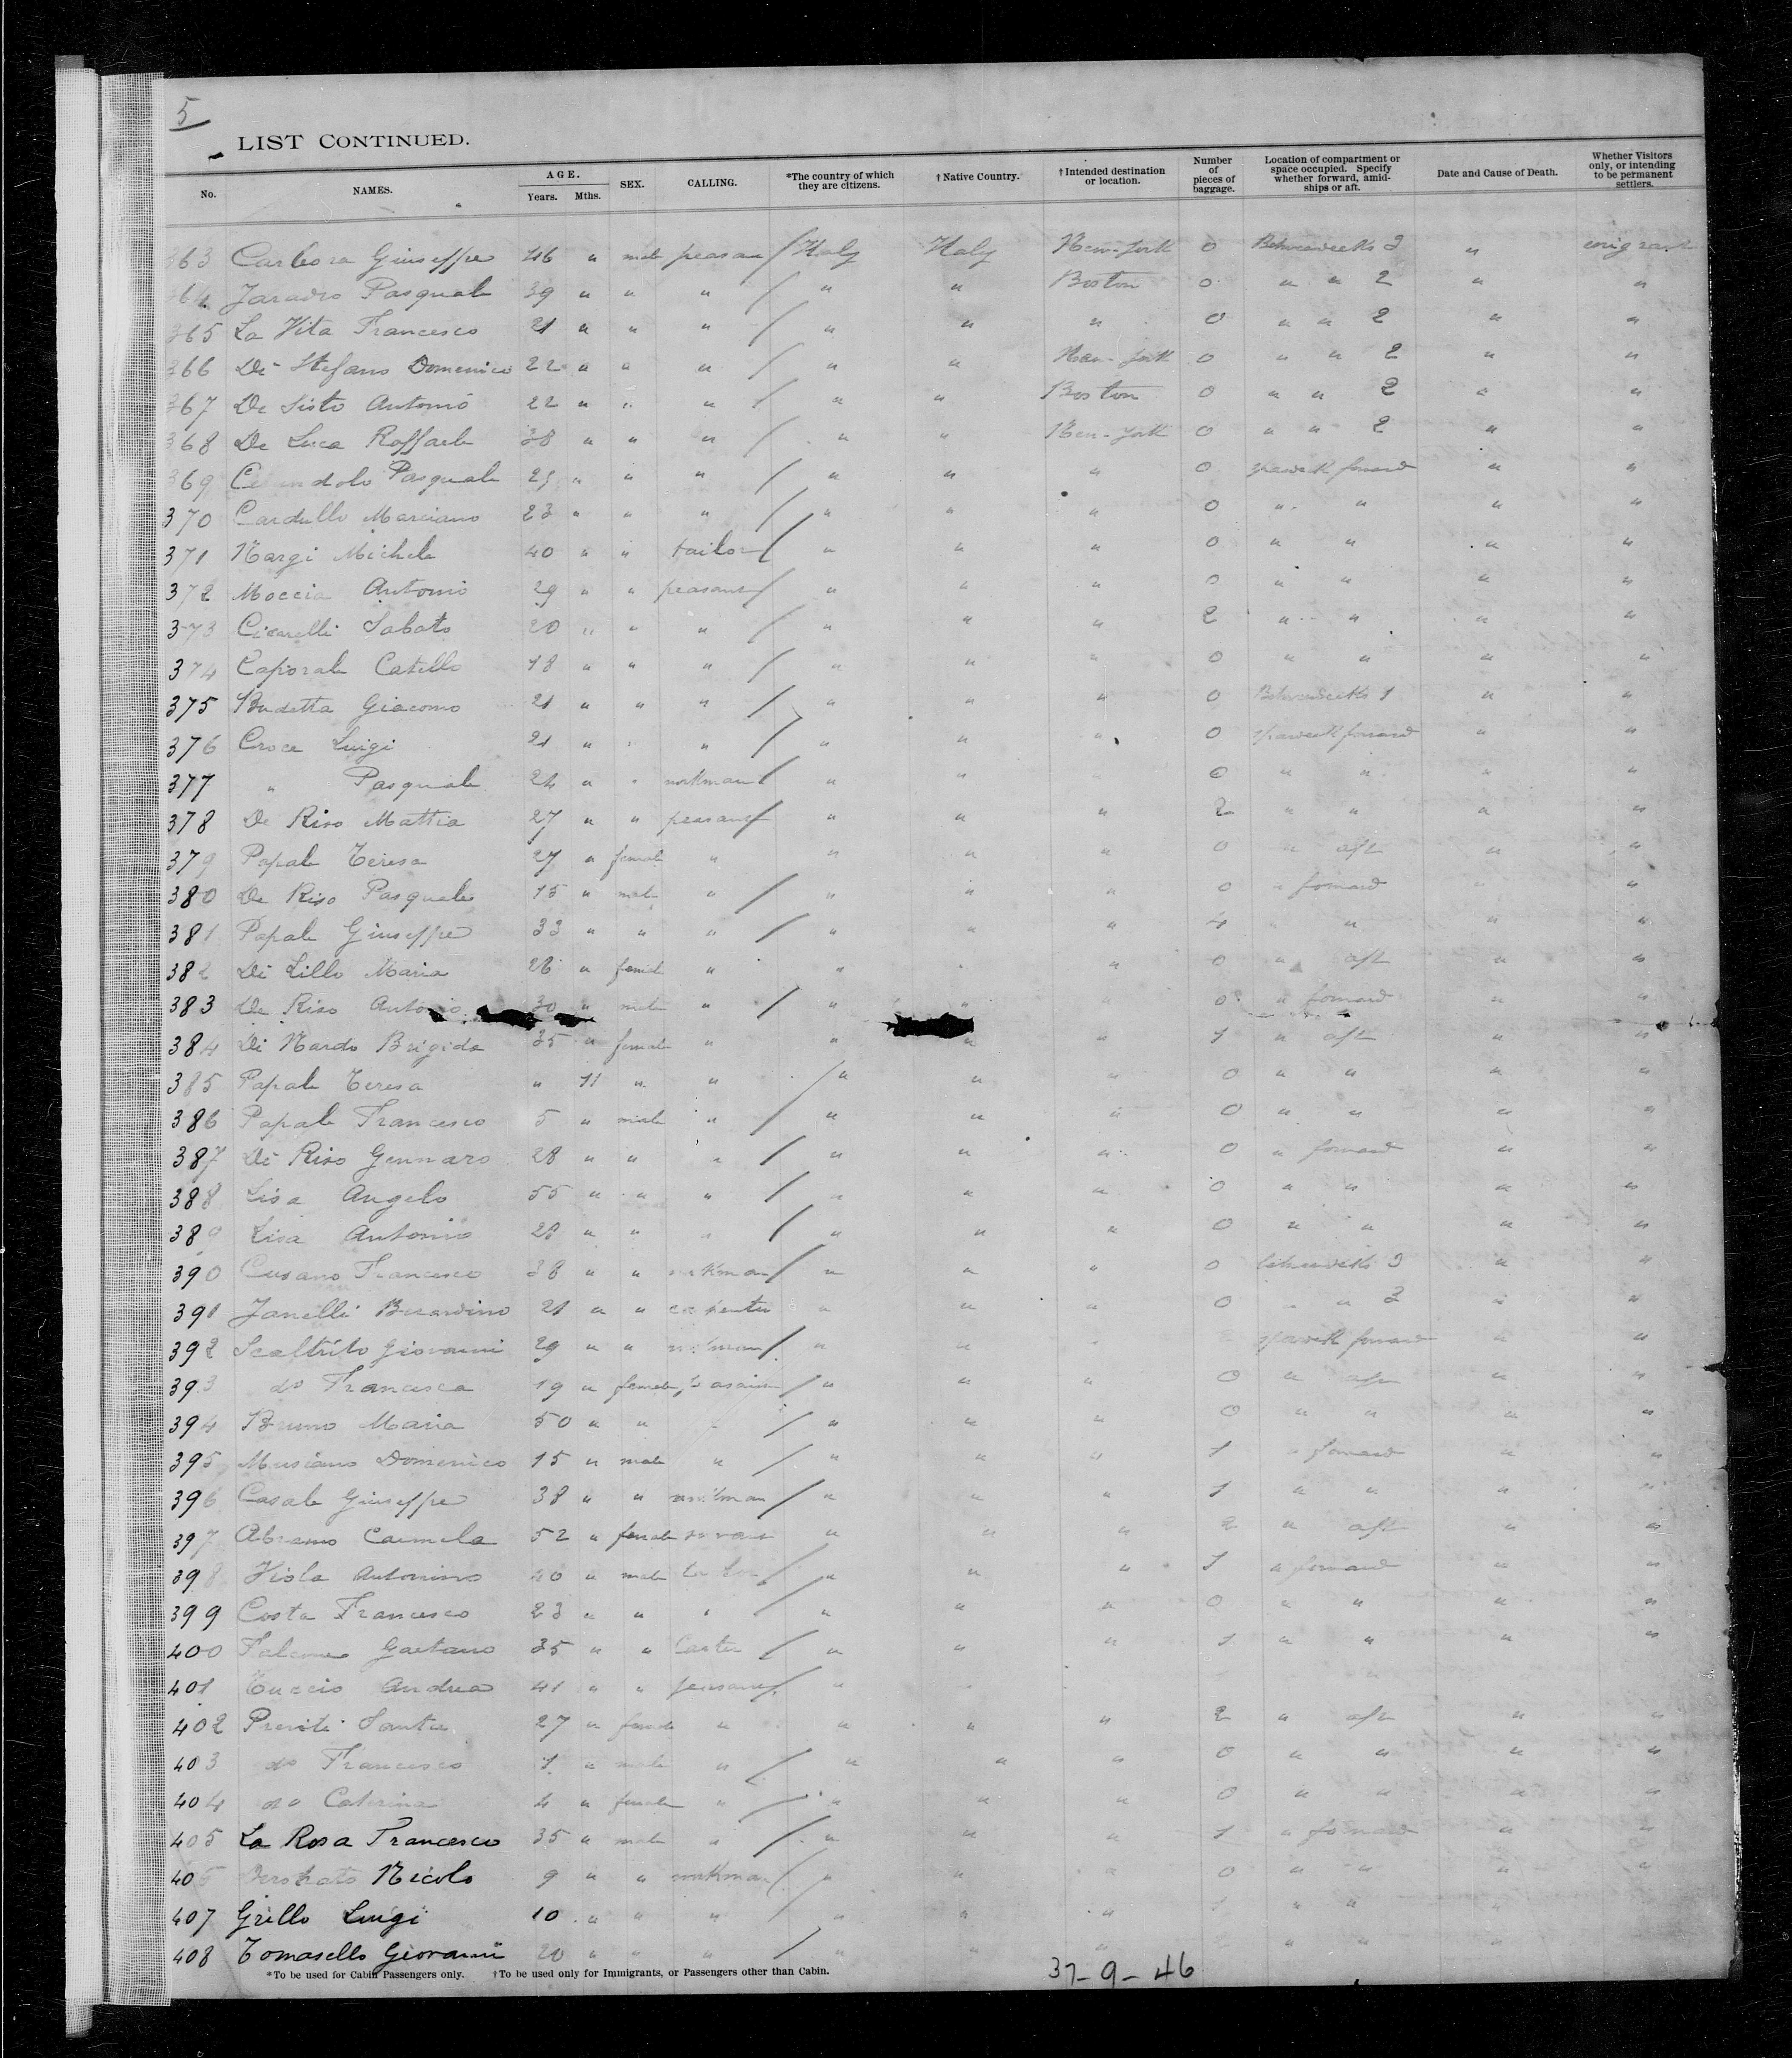 5
LIST CONTINUED.
No. NAMES. AGE. Years. Mths. SEX. CALLING. *The country of which they are citizens. †Native Country. †Intended destination or location. Number of pieces of baggage. Location of compartment or space occupied. Specify whether forward, amidships or aft. Date and Cause of Death. Whether Visitors only, or intending to be permanent settlers.
363 Giuseppe 46 " male peasan / Italy Italy New-York 0 Betweendecks 2 " emigrant
364 Pasquale 39 " " " / " " Boston 0 " " 2 " "
365 La Vita Francesco 21 " " " / " " " 0 " " 2 " "
366 Di Stefano Domenico 22 " " " / " " New-York 0 " " 2 " "
367 De Sisto Antonio 22 " " " / " " Boston 0 " " 2 " "
368 De Luca Raffaele 38 " " " / " " New-York 0 " " 2 " "
369 Pasquale " " " / " " " 0 forward " "
370 Cardullo Marciano 23 " " " / " " " 0 " " " "
371 Nargi Michele 40 " " tailor / " " " 0 " " " "
372 Moccia Antonio 29 " " peasant / " " " 0 " " " "
373 Cicarelli Sabato 20 " " " / " " " 2 " " " "
374 Caporale Catello 18 " " " / " " " 0 " " " "
375 Budetta Giacomo 21 " " " / " " " 0 Betweendecks 1 " "
376 Croce Luigi 21 " " " / " " " 0 forward " "
377 " Pasquale 24 " " workman / " " " 0 " " " "
378 De Riso Mattia 27 " " peasant " " " 2 " " " "
379 Papale Teresa 27 " female " " " " 0 " aft " "
380 De Riso Pasquale 15 " male " / " " " 0 " forward " "
381 Papale Giuseppe 33 " " " / " " " 4 " " " "
382 Di Lillo Maria 26 " female " " " " 0 " aft " "
383 De Riso Antonio 30 " male " / " " " 0 " forward " "
384 Di Nardo Brigida 35 " female " " " " 1 " aft " "
385 Papale Teresa " 11 " " / " " " 0 " " " "
386 Papale Francesco 5 " male " / " " " 0 " " " "
387 De Riso Gennaro 28 " " " / " " " 0 " forward " "
388 Lisa Angelo 55 " " " / " " " 0 " " " "
389 Lisa Antonio 28 " " " / " " " 0 " " " "
390 Cusano Francesco 38 " " workman / " " " 0 betweendecks 2 " "
391 Janelli Berardino 21 " " carpenter " " " 0 " " 2 " "
392 Giovanni 29 " " workman / " " " forward " "
393 do Francesca 19 " female peasant / " " " 0 " aft " "
394 Bruno Maria 50 " " " / " " " 0 " " " "
395 Musiano Domenico 15 " male " / " " " 1 " forward " "
396 Casale Giuseppe 38 " " workman / " " " 1 " " " "
397 Abramo Carmela 52 " female servant " " " 2 " aft " "
398 Viola Antonino 40 " male tailor / " " " 1 " forward " "
399 Costa Francesco 23 " " " / " " " 0 " " " "
400 Falcone Gaetano 35 " " Carter / " " " 1 " " " "
401 Tuccio Andrea 41 " " peasant / " "
402 Previti Santa 27 " female " " " " 2 " aft " "
403 do Francesco 1 " male " / " " " 0 " " " "
404 do Caterina 4 " female " / " " " 0 " " " "
405 La Rosa Francesco 35 " male " / " " " 1 " forward " "
406 Nicolo 9 " " workman / " " " 0 " " " "
407 Grillo Luigi 10 " " " " " " 1 " " "
408 Tomasello Giovanni 20 " " " / " " " " "
*To be used for Cabin Passengers only. †To be used only for Immigrants, or Passengers other than Cabin.
37-9-46